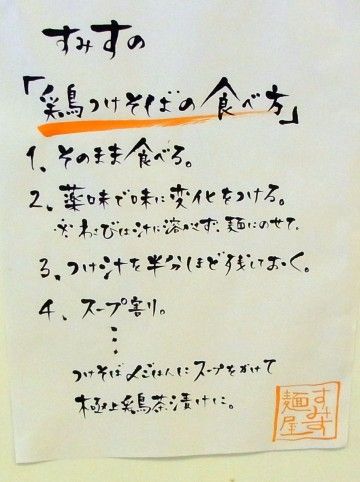 すみすの
「鶏つけそばの食べ方」
1、そのまま食べる。
2、薬味で味に変化をつける。
※わさびは汁に溶かさず、麺にのせて。
3、つけ汁を半分ほど残しておく。
4、スープ割り。
⋮
つけそば〆ごはんにスープをかけて
極上鶏茶漬けに。
麺屋
すみす